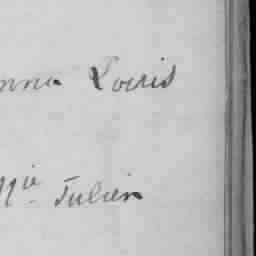 nna Louis
Mie Julien